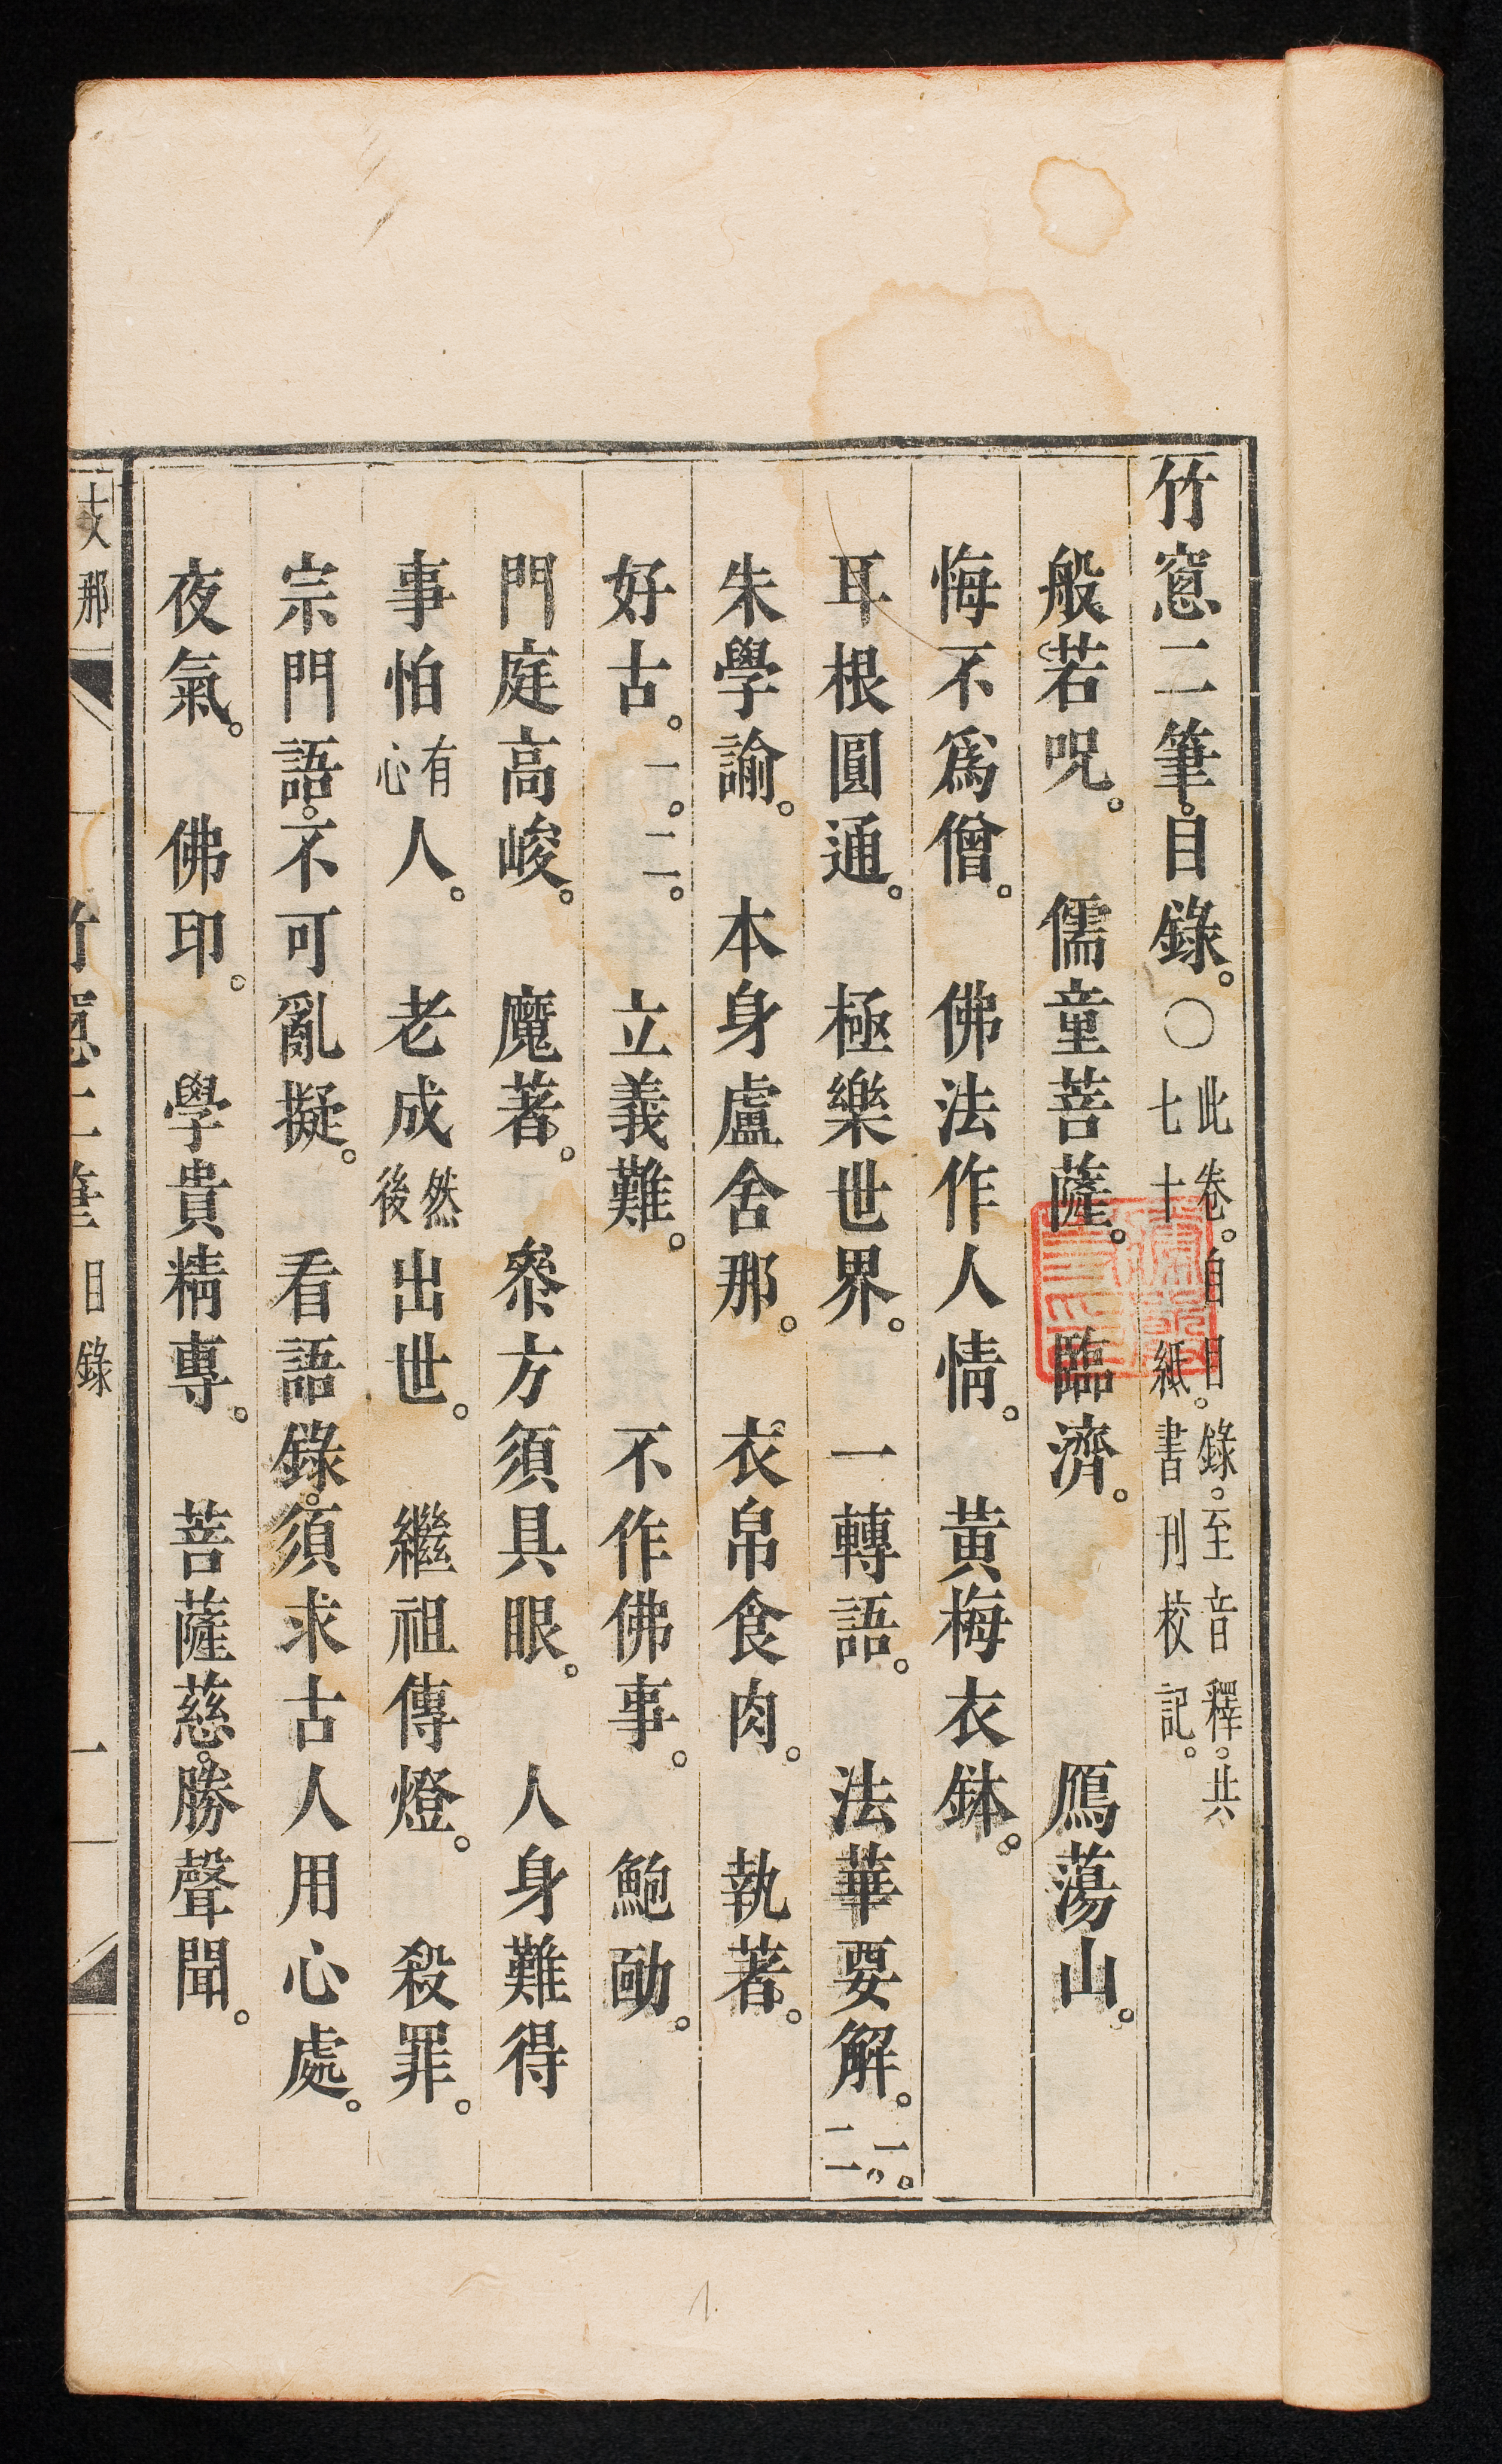 竹窻二筆。目錄。○此卷。自目錄。至音釋。共七十紙書刊校記。
般若呪。儒童菩薩。臨濟。鴈蕩山。
悔不爲僧。佛法作人情。黃梅衣鉢。
耳根圓通。極樂世界。一轉語。法華要解。一。二。
朱學諭。本身盧舍那。衣帛食肉。執著。
好古。一。二。立義難。不作佛事。鮑勔。
門庭高峻。魔著。叅方須具眼。人身難得
事怕有心人。老成然後出世。繼祖傳燈。殺罪。
宗門語。不可亂擬。看語錄。須求古人用心處。
夜氣。佛印。學貴精專。菩薩慈。勝聲聞。
支那
竹窻二筆目錄
一